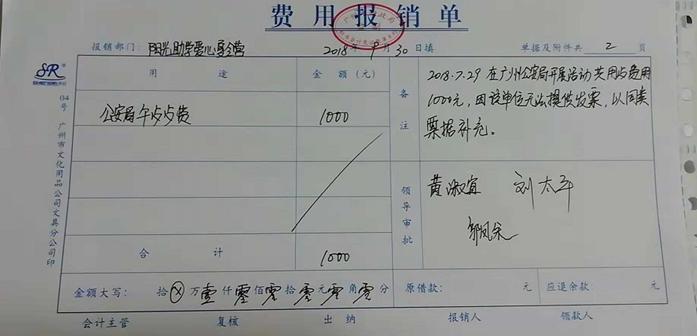 费用报销单
报销部门: 阳光助学爱心夏令营 2018 年 9 月 30 日填 单据及附件共 2 页
用途 金额(元)
公安局午 费 1000
合计 1000
备注
2018.7.29 在广州公安局开展活动共用 费用
1000元,因该单位无法提供发票,以同类
票据补充。
领导审批
黄淑宜 刘太平
金额大写: 拾 ⊗ 万 壹 仟 零 佰 零 拾 零 元 零 角 零 分 原借款: 元 应退余款: 元
会计主管 复核 出纳 报销人 领款人
SR
014号
广州市文化用品公司文具分公司印